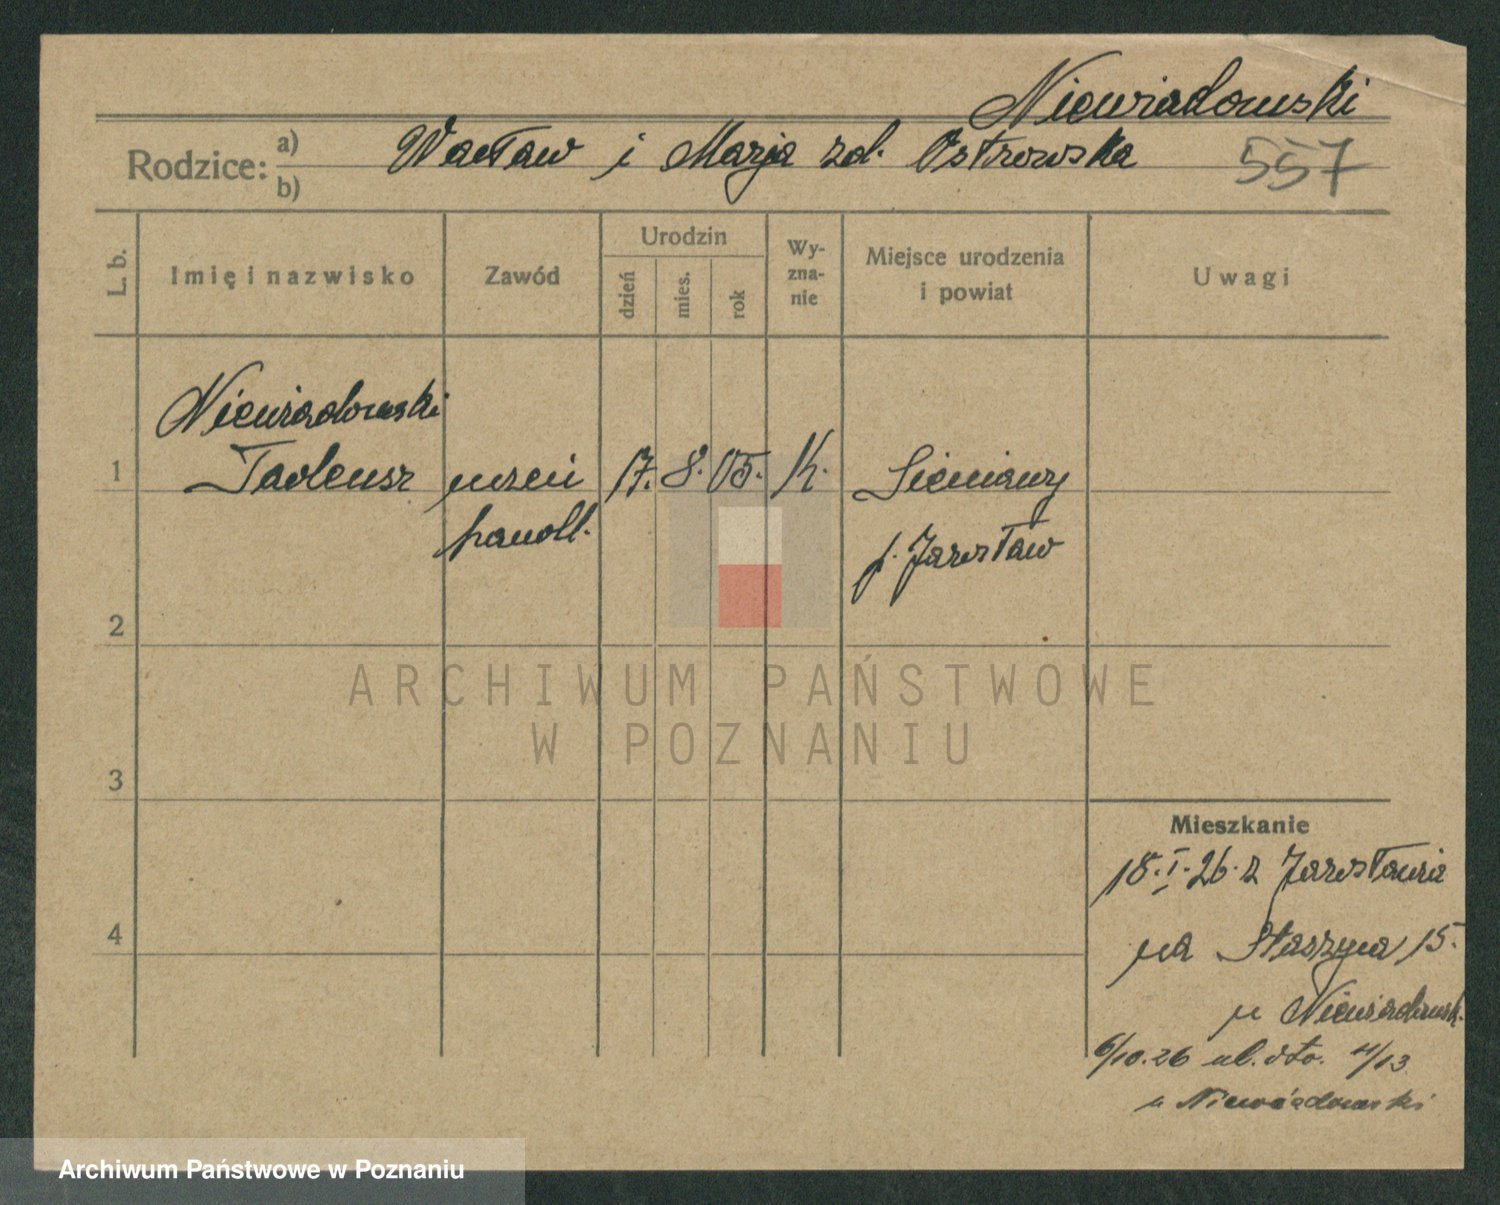 Niewiadowski
Rodzice: a) b) Wacław i Marja zd. Ostrowska 557
L. b. Imię i nazwisko Zawód Urodzin dzień mies. rok Wy-zna-nie Miejsce urodzenia i powiat Uwagi
Niewiadowski
1 Tadeusz uczeń 17. 8. 05. k. Sieniawy
handl. p. Jarosław
2
ARCHIWUM PAŃSTWOWE
W POZNANIU
3
Mieszkanie
18.I.26. z Jarosławia
4
na Staszyca 15.
u Niewiadowsk.
6/10.26 ul. dto. 4/13
u Niewiadowski
Archiwum Państwowe w Poznaniu